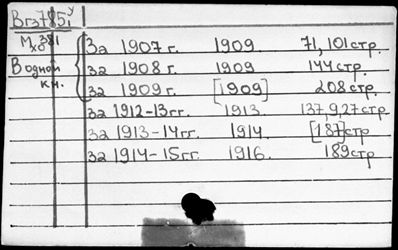 Вгз785/у
Мх381
За 1907 г. 1909. 71, 101 стр.
В одной за 1908 г. 1909 144 стр.
кн. за 1909 г. [1909] 208 стр.
за 1912-13 гг. 1913. 137, 9, 27 стр
за 1913-14 гг. 1914. [187] стр
за 1914-15 гг. 1916. 189 стр